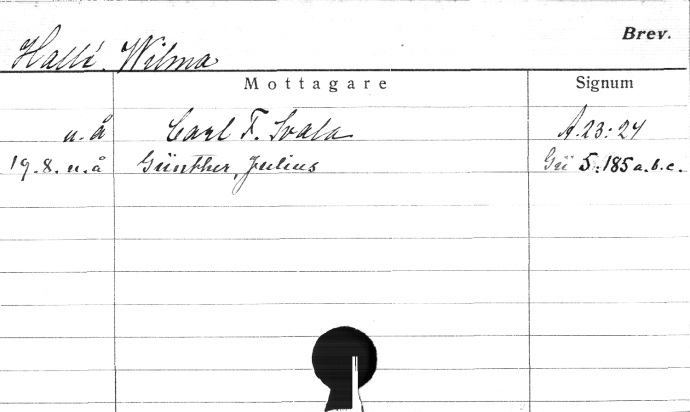 Brev.
Hallé. Wilma
Mottagare Signum
u. å Carl F. Svala A.23:24
19.8. u. å Günther, Julius Gü 5:185 a.b.c.